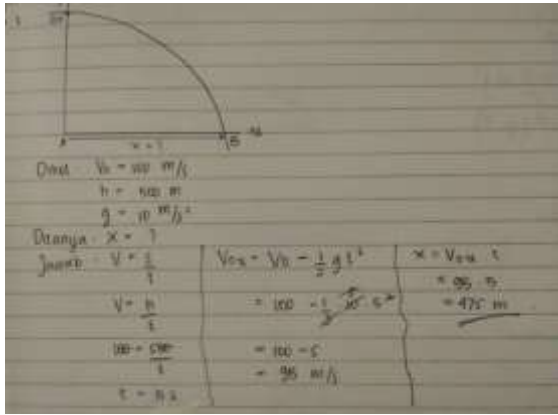 x = ?
B
V₀ = 100 m/s
h = 500 m
g = 10 m/s²
Ditanya : X = ?
Jawab :
V = h/t
100 = 500/t
V₀x = V₀ - 1/2 g t²
= 100 - 1/2 10 . 5²
= 100 - 5
= 95 m/s
x = V₀x t
= 95 . 5
= 475 m